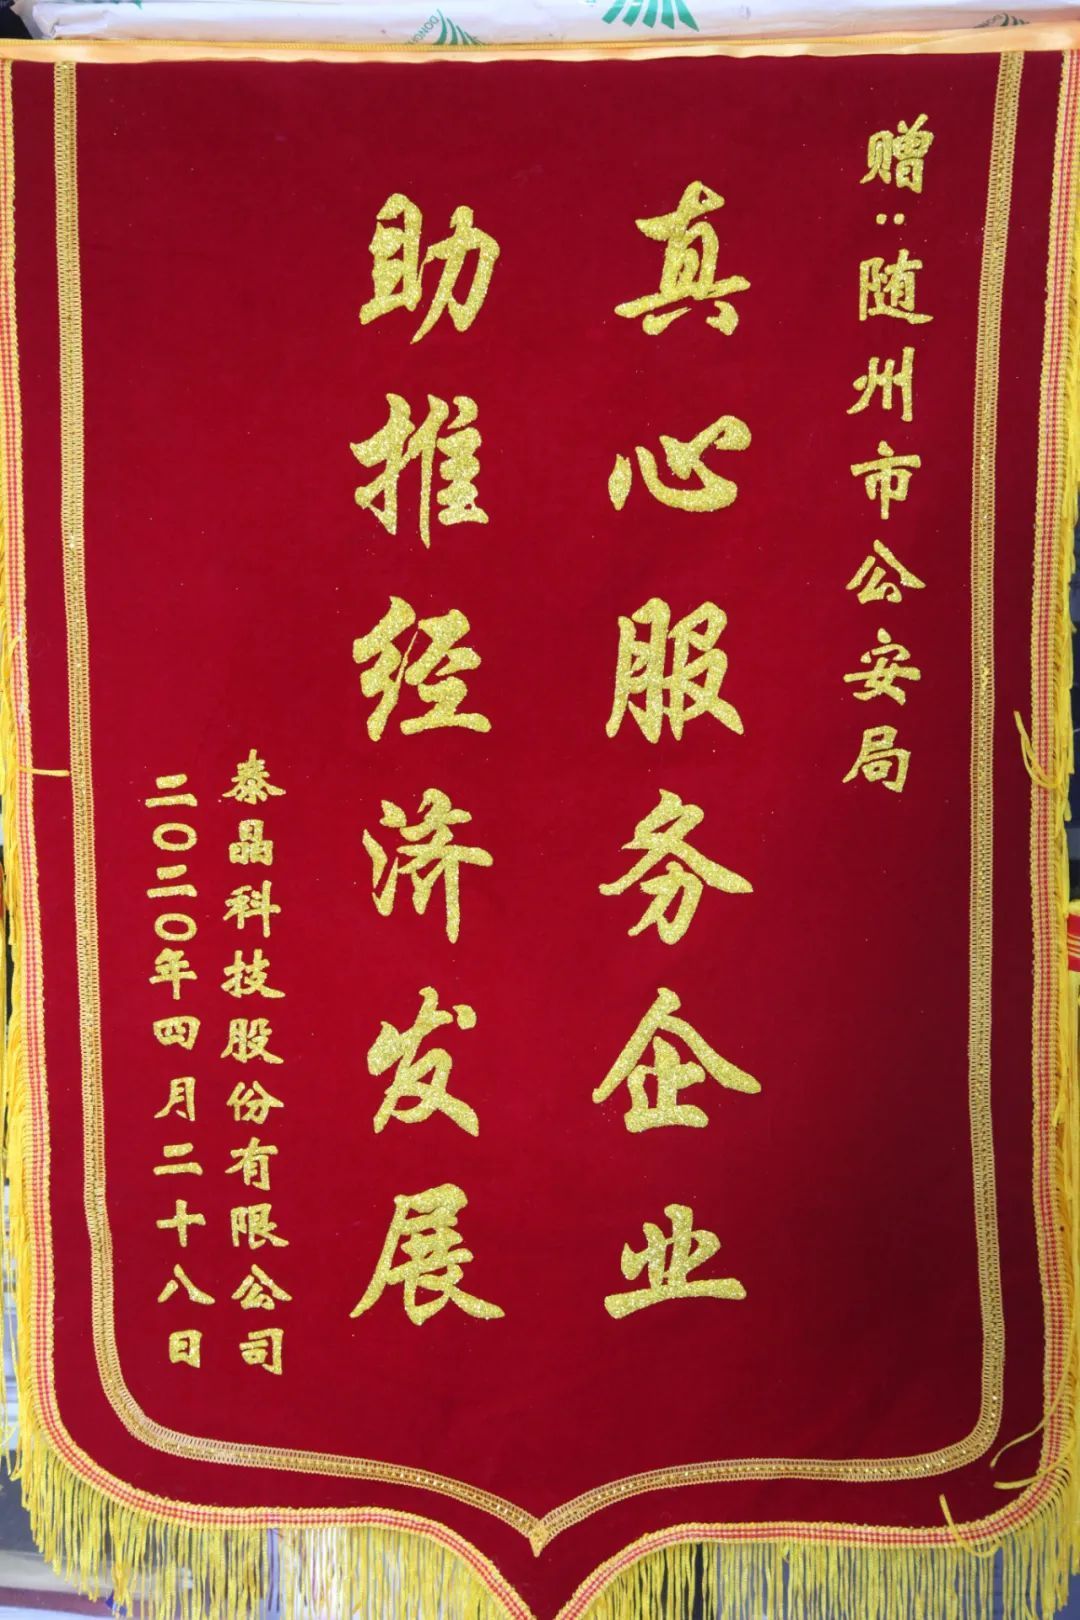 赠:随州市公安局
真心服务企业
助推经济发展
泰晶科技股份有限公司
二〇二〇年四月二十八日